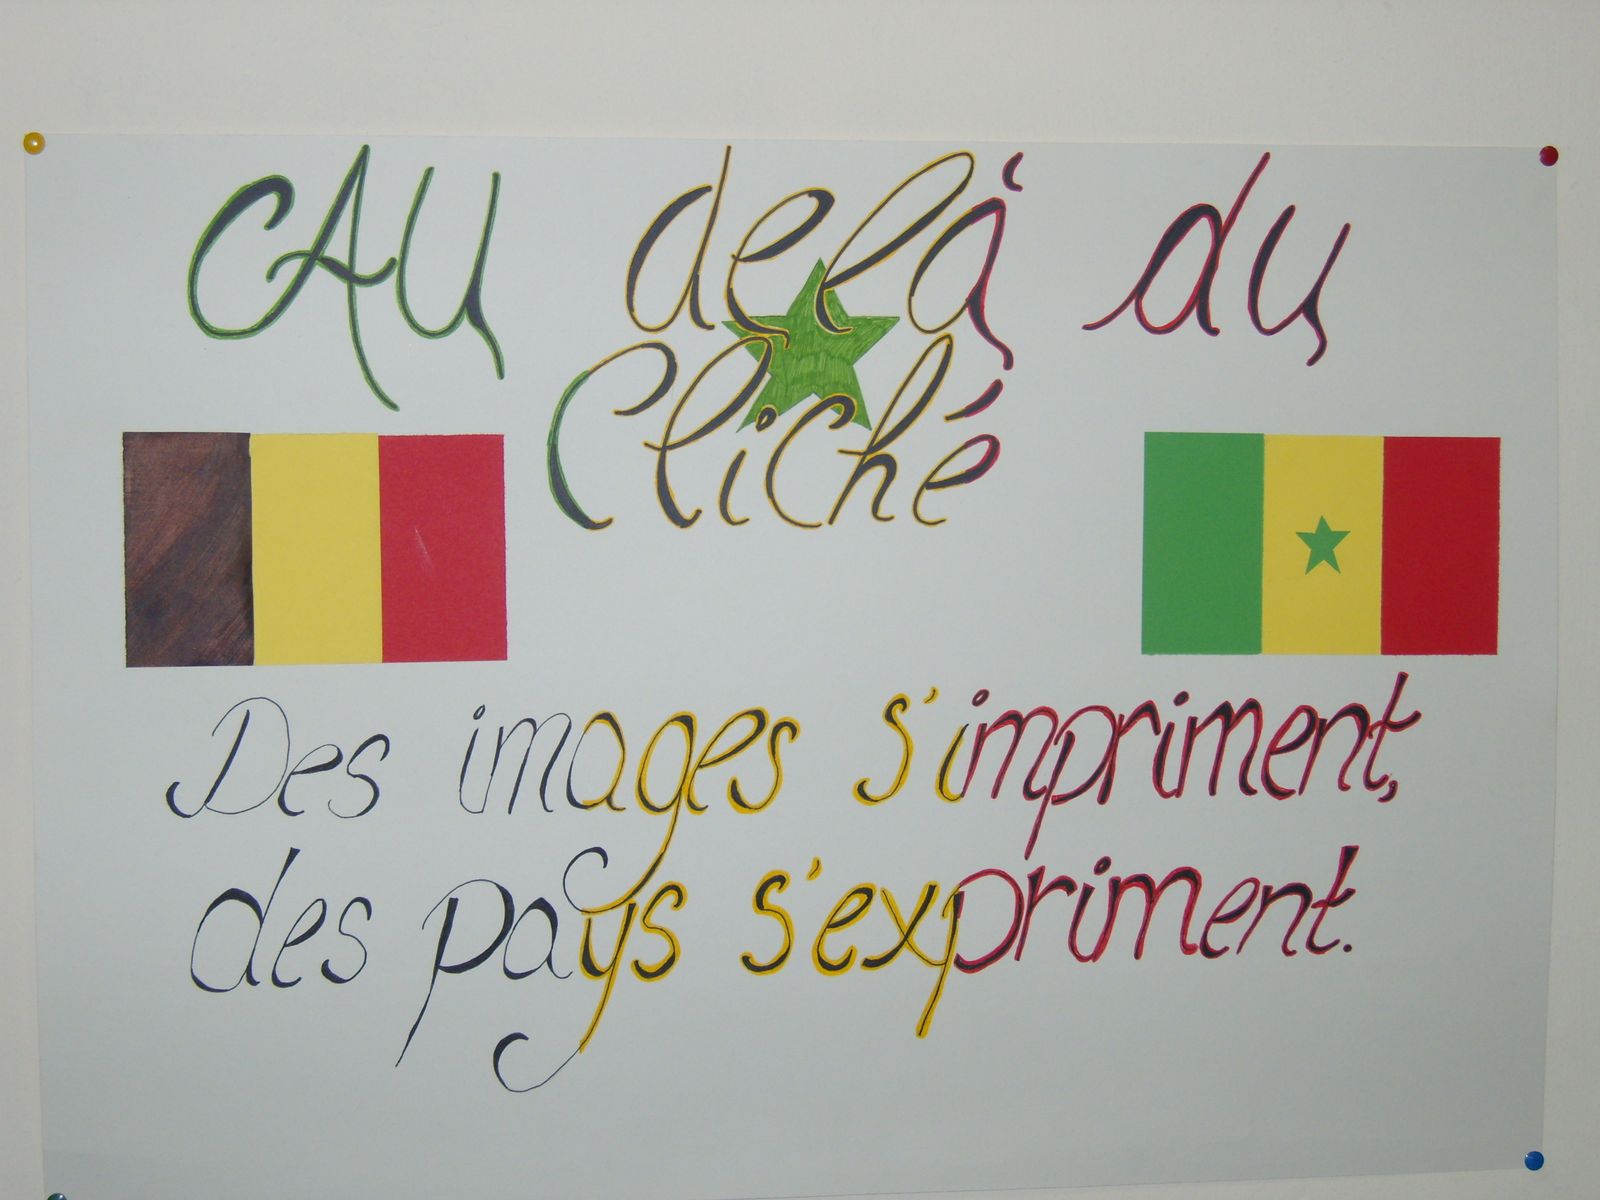 Au delà du
Cliché
Des images s'impriment,
des pays s'expriment.